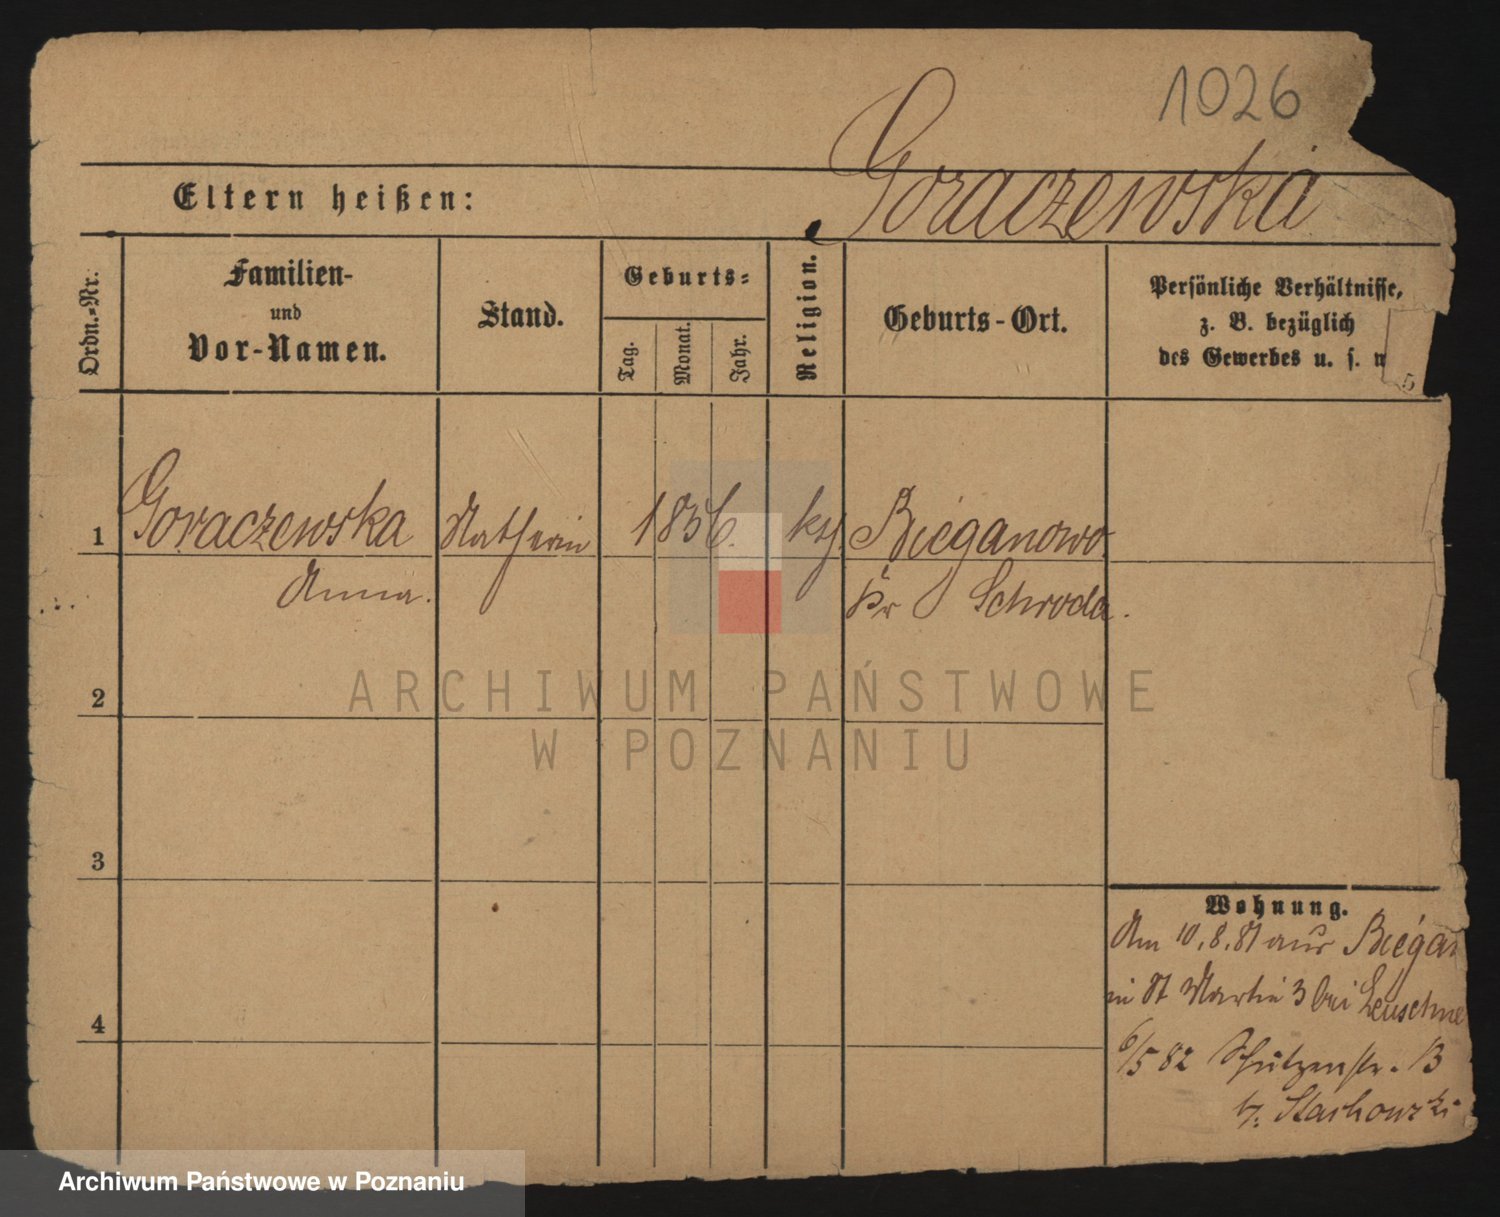 1026
Goraczewska
Eltern heißen:
Ordn.-Nr:
Familien-
und
Vor-Namen.
Stand.
Geburts-
Tag.
Monat.
Jahr.
Religion.
Geburts-Ort.
Persönliche Verhältnisse,
z. B. bezüglich
des Gewerbes u. s. w
5
1 Goraczewska Nätherin 1856. kth Bieganowo
Anna. Kr Schroda.
2
ARCHIWUM PAŃSTWOWE
W POZNANIU
3
Wohnung.
Am 10.8.81 aus Biegan
in St Martin 3 bei Leuschne
4
6/5 82 Schützenstr. 13
b. Stachowski
Archiwum Państwowe w Poznaniu